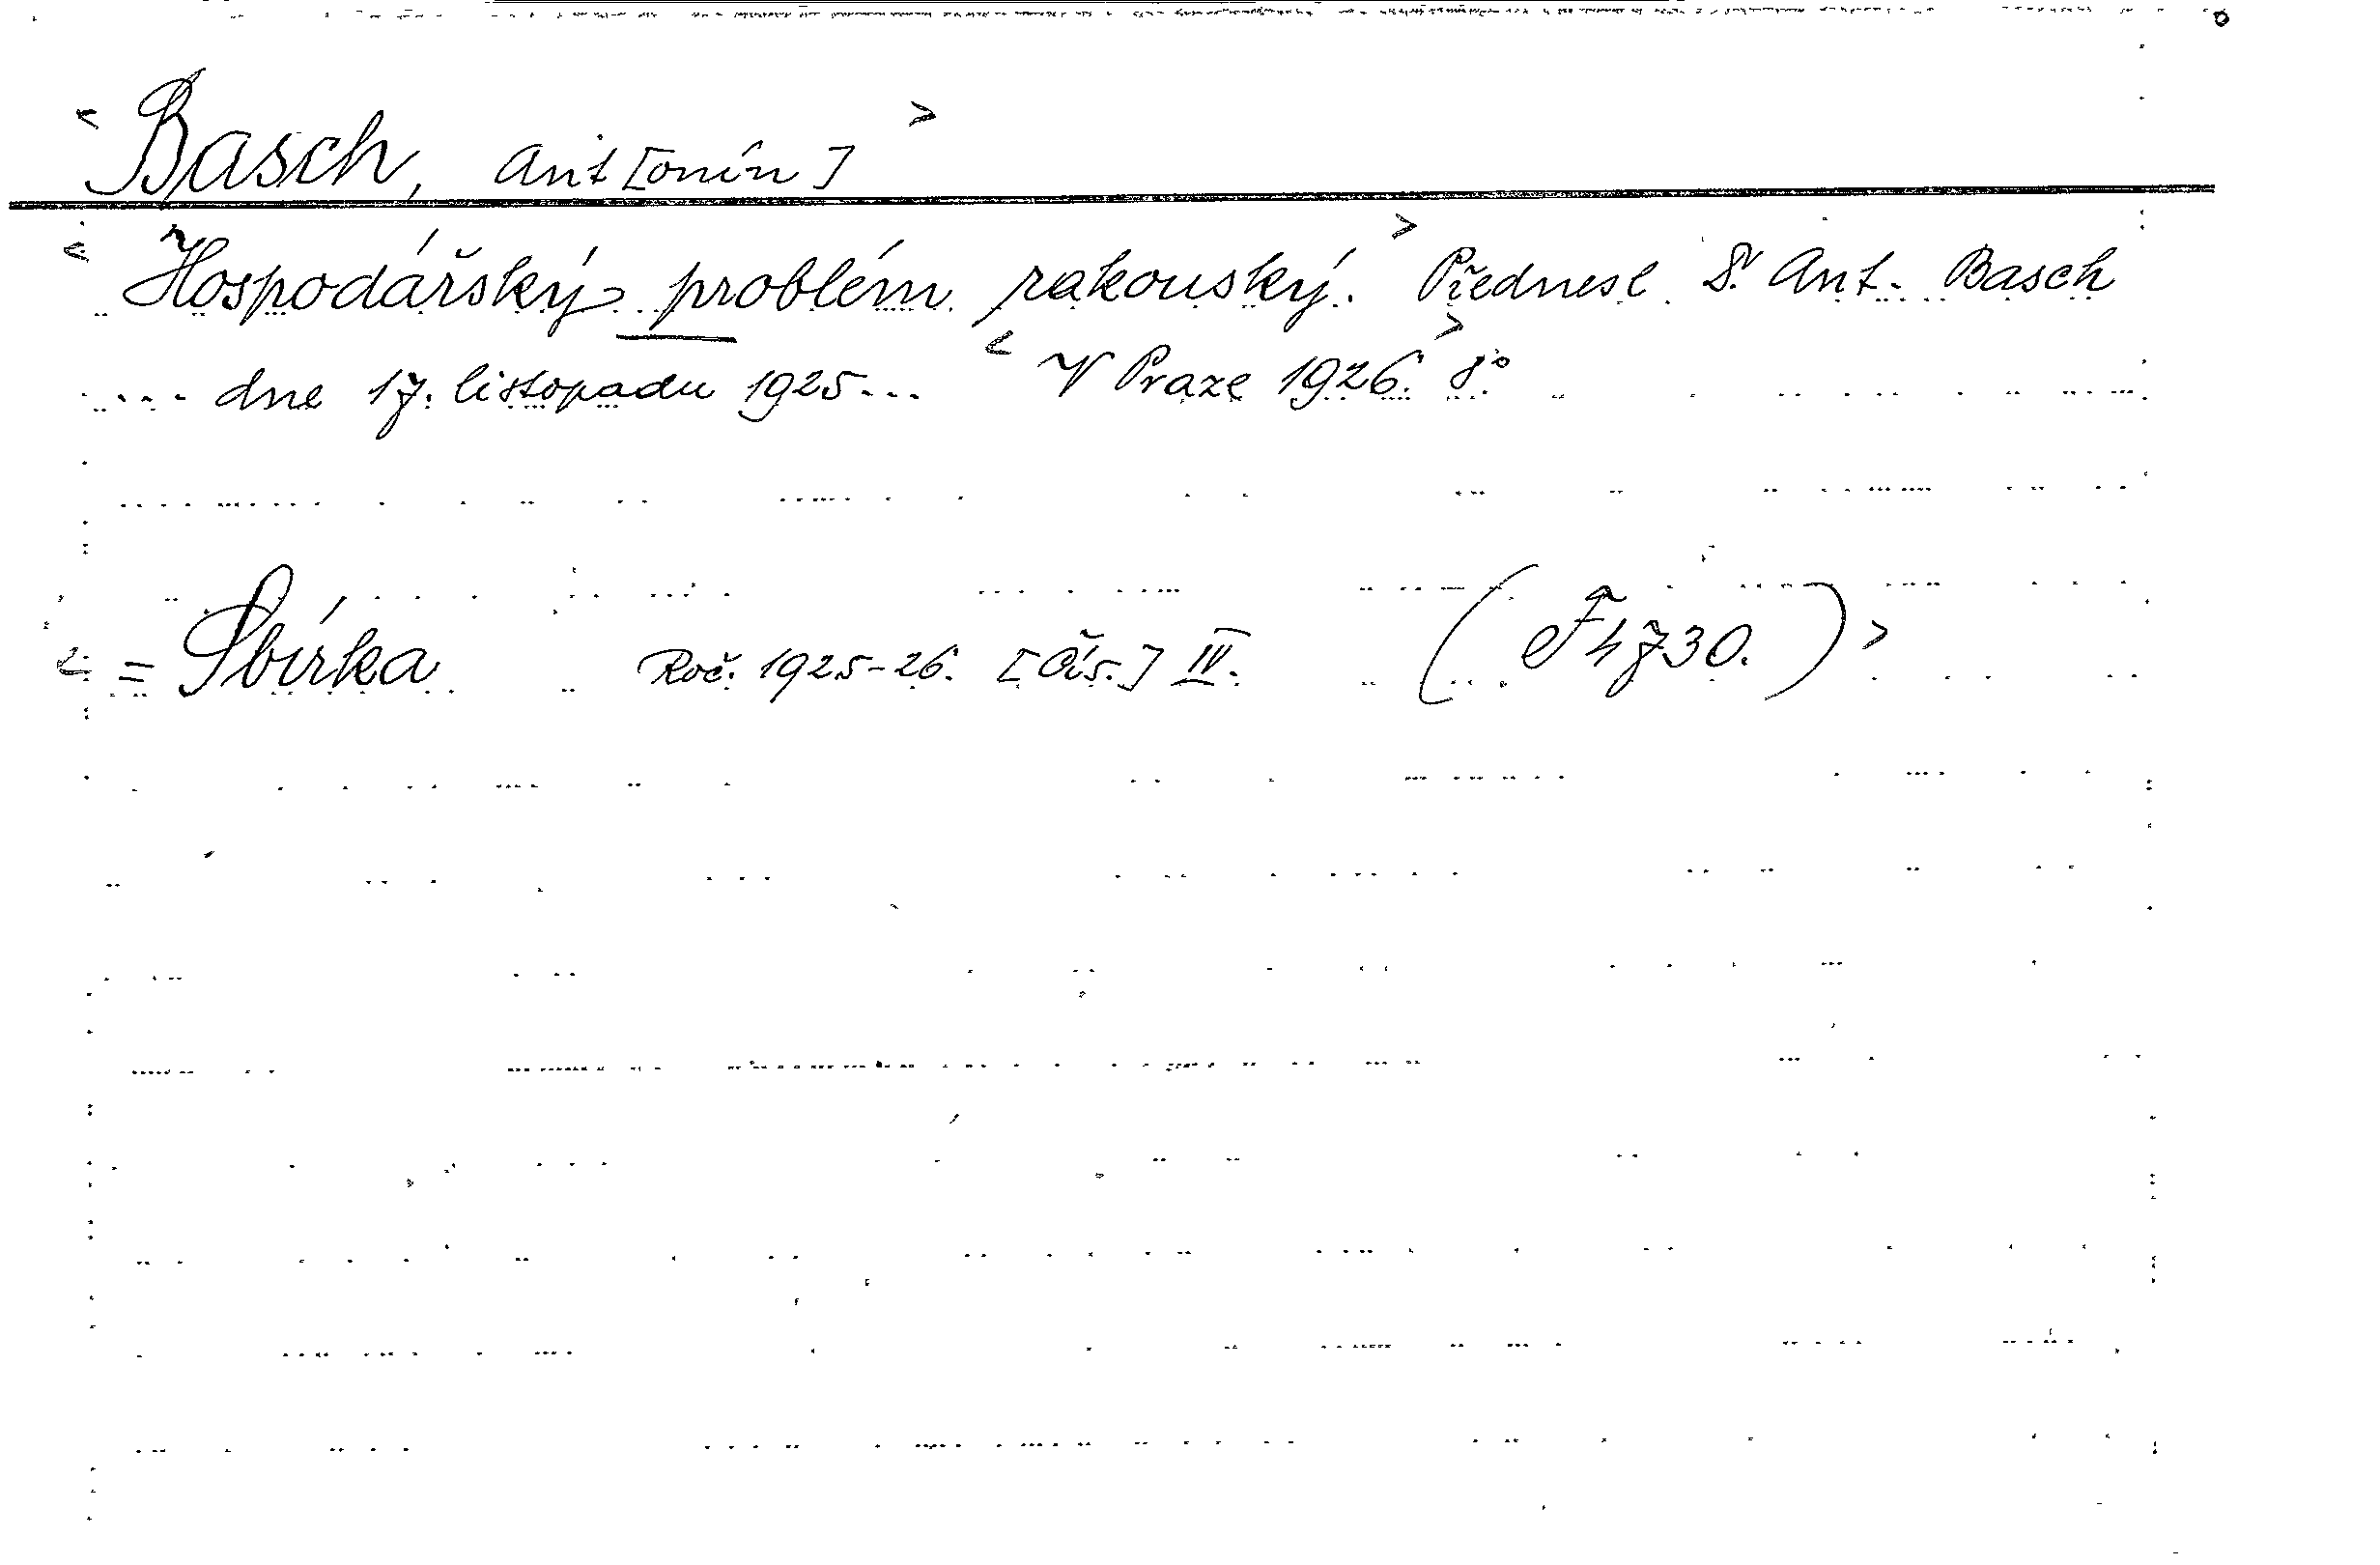 < Basch, Ant[onín] >
< Hospodářský problém rakouský. > Přednesl Dr. Ant. Basch
.... dne 17. listopadu 1925... < V Praze 1926. > 8°
< = Sbírka Roč. 1925-26. [Čís.] IV. (F 4730.) >